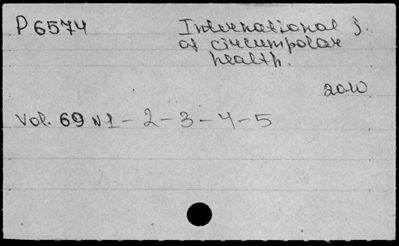 P 6574
International j.
of circumpolar
health.
2010
Vol. 69 N1 - 2 - 3 - 4 - 5